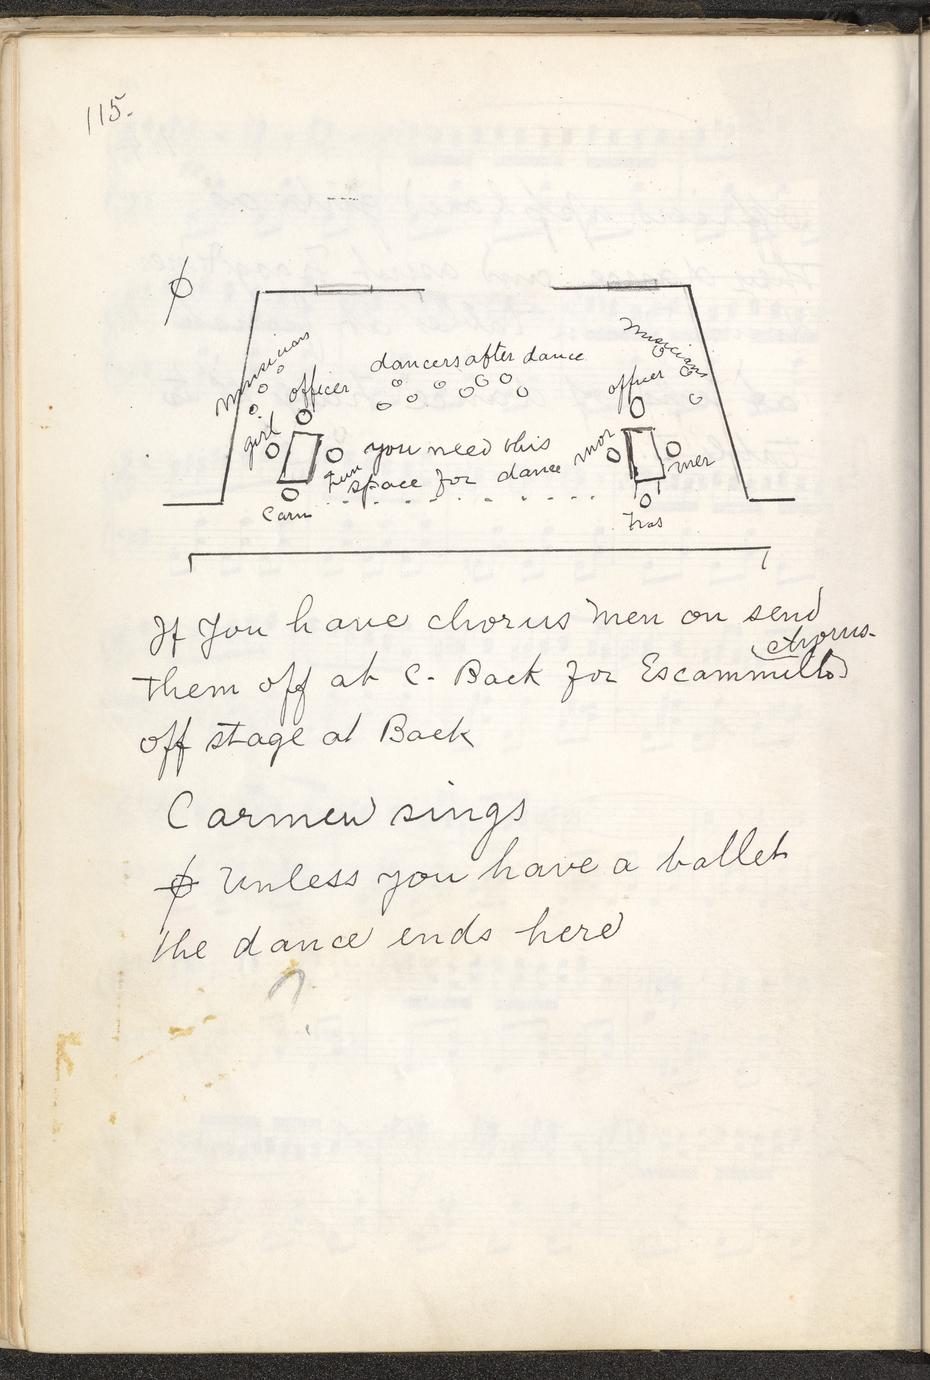 115.
ϕ
musicians
officer
dancers after dance
musicians
officer
girl
you need this
mor
Zun
space for dance
mer
Carm
Fras
If you have chorus men on send
chorus.
them off at C. Back for Escammillo
off stage at Back
Carmen sings
ϕ Unless you have a ballet
the dance ends here